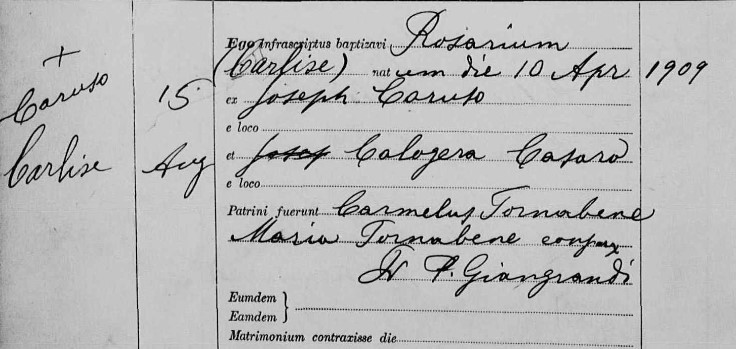 +
Caruso
Carlise
15
Aug
Ego infrascriptus baptizavi Rosarium
(Carlise) natum die 10 Apr 1909
ex Joseph Caruso
e loco
et Calogera Casaro
e loco
Patrini fuerunt Carmelus Tornabene
Maria Tornabene
P. Giangrandi
Eumdem }
Eamdem }
Matrimonium contraxisse die